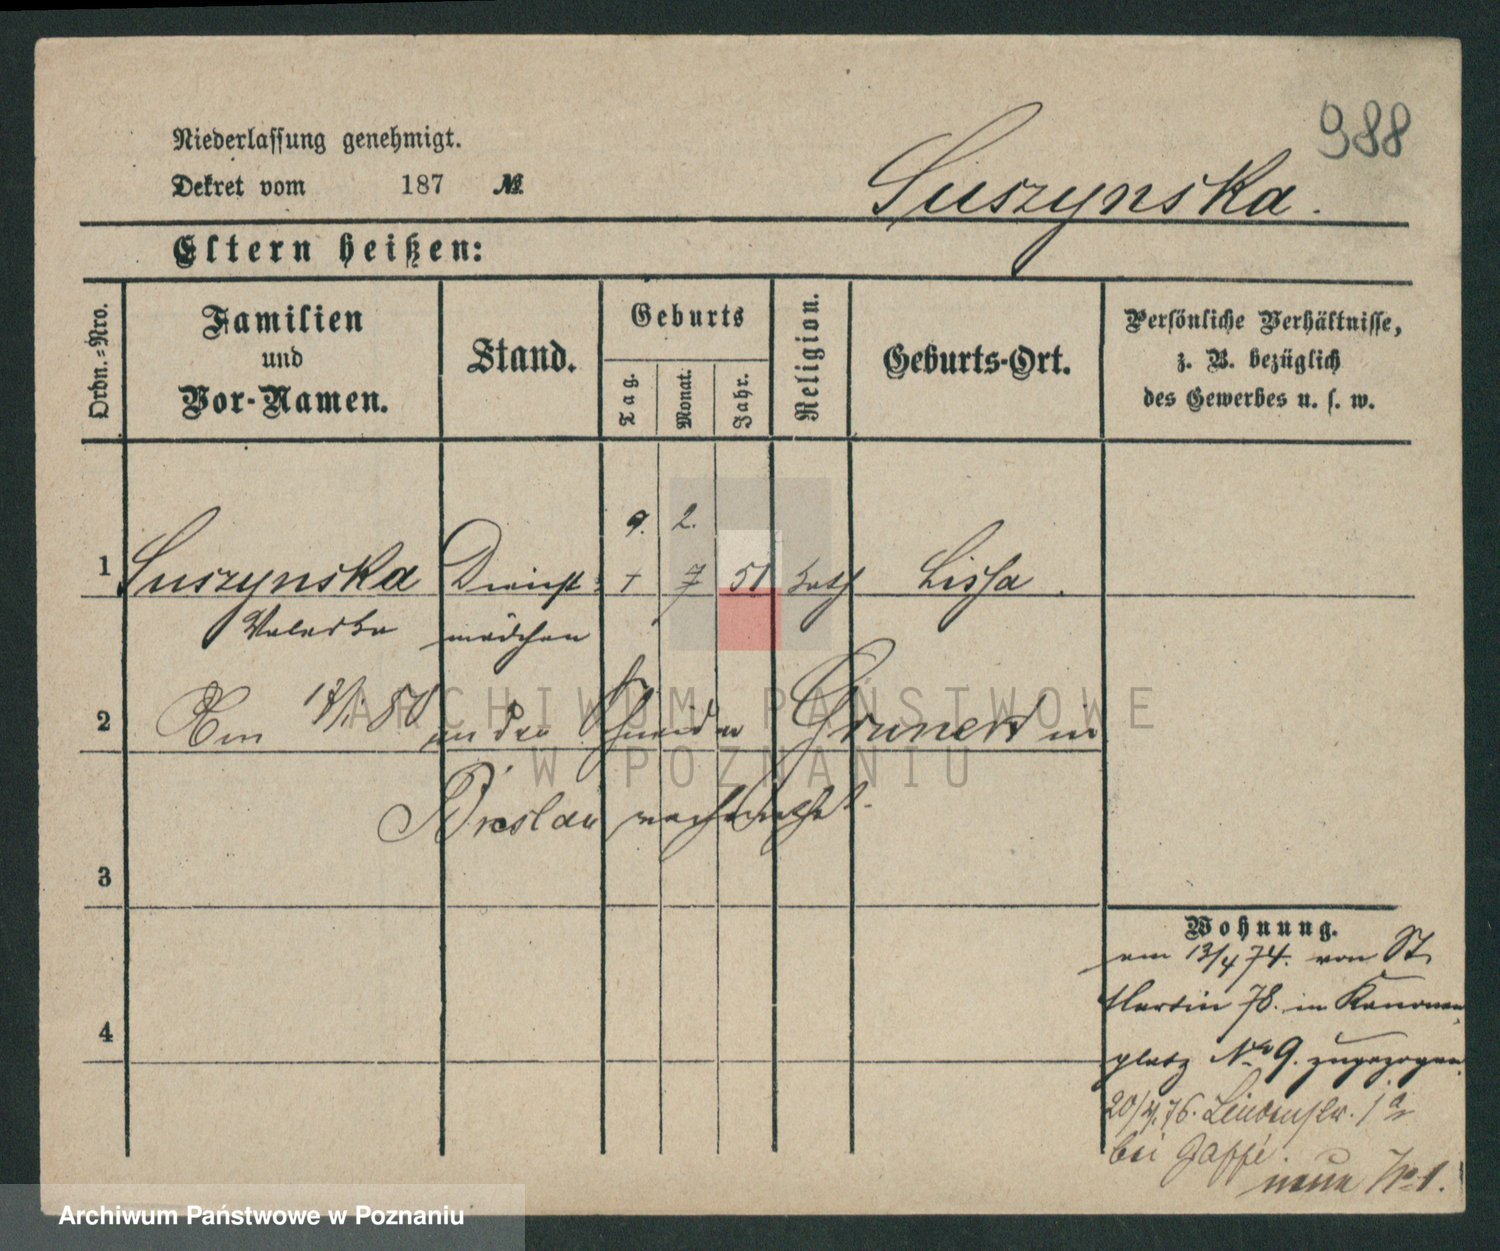 988
Niederlassung genehmigt.
Dekret vom 187 №
Suszynska.
Eltern heißen:
Ordn.=Nro.
Familien und Vor-Namen.
Stand.
Geburts
Tag.
Monat.
Jahr.
Religion.
Geburts-Ort.
Persönliche Verhältnisse,
z. B. bezüglich
des Gewerbes u. s. w.
9. 2.
1 Suszynska Dienst= 7 51 kath Lissa.
Valeska mädchen
2 Am an den Schneider Grunert in
Breslau
3
Wohnung.
am 13/4 74. von St
Martin 78. in Kanonen
4
platz No 9. zugezogen.
20/4.76. Lindenstr. 1a
bei Jaffé.
neue No 1.
ARCHIWUM PAŃSTWOWE
W POZNANIU
Archiwum Państwowe w Poznaniu